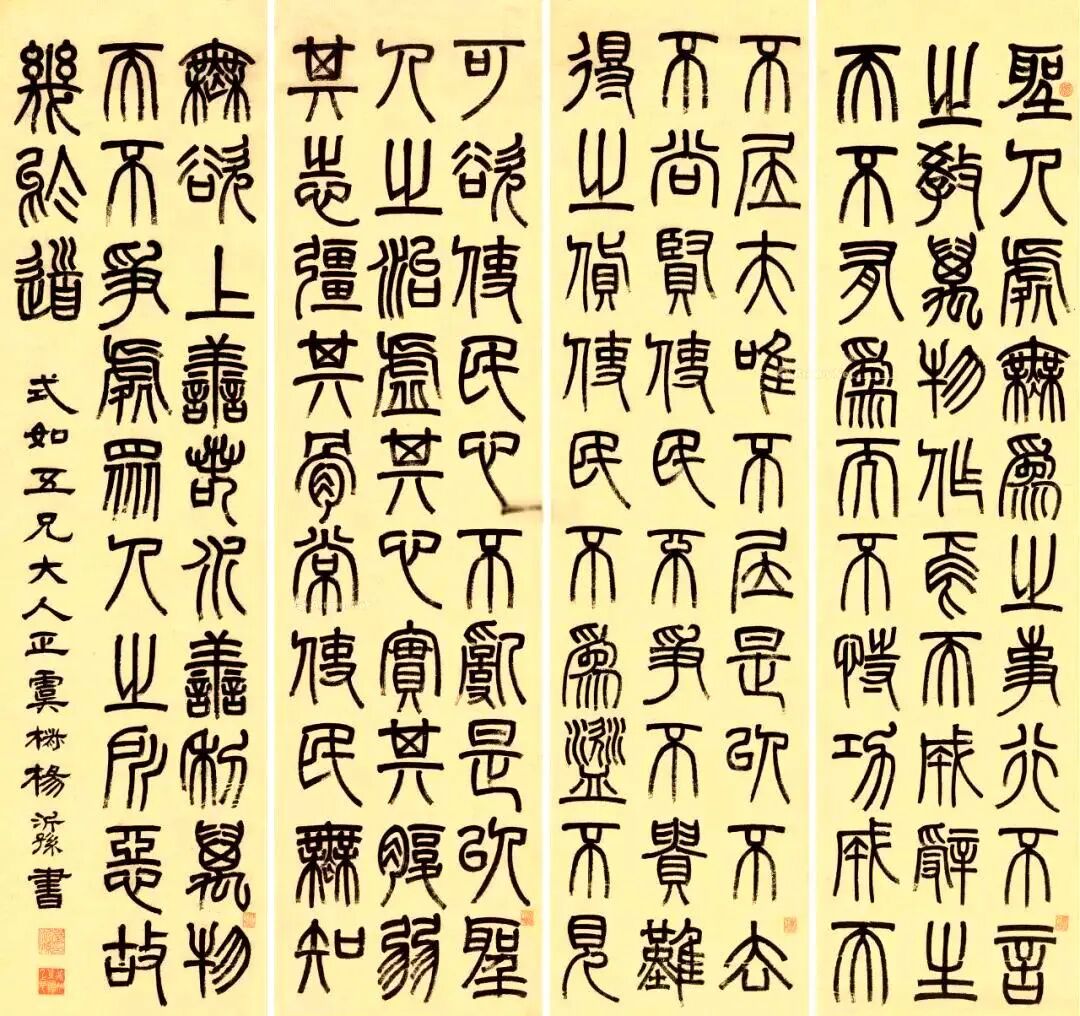 聖人處無爲之事行不言
之教萬物作焉而成辭生
而不有爲而不恃功成而
不居夫唯不居是以不去
不尚賢使民不爭不貴難
得之貨使民不爲盜不見
可欲使民心不亂是以聖
人之治虛其心實其腹弱
其志彊其骨常使民無知
無欲上善若水善利萬物
而不爭處眾人之所惡故
幾於道
式如五兄大人正虞楊沂孫書